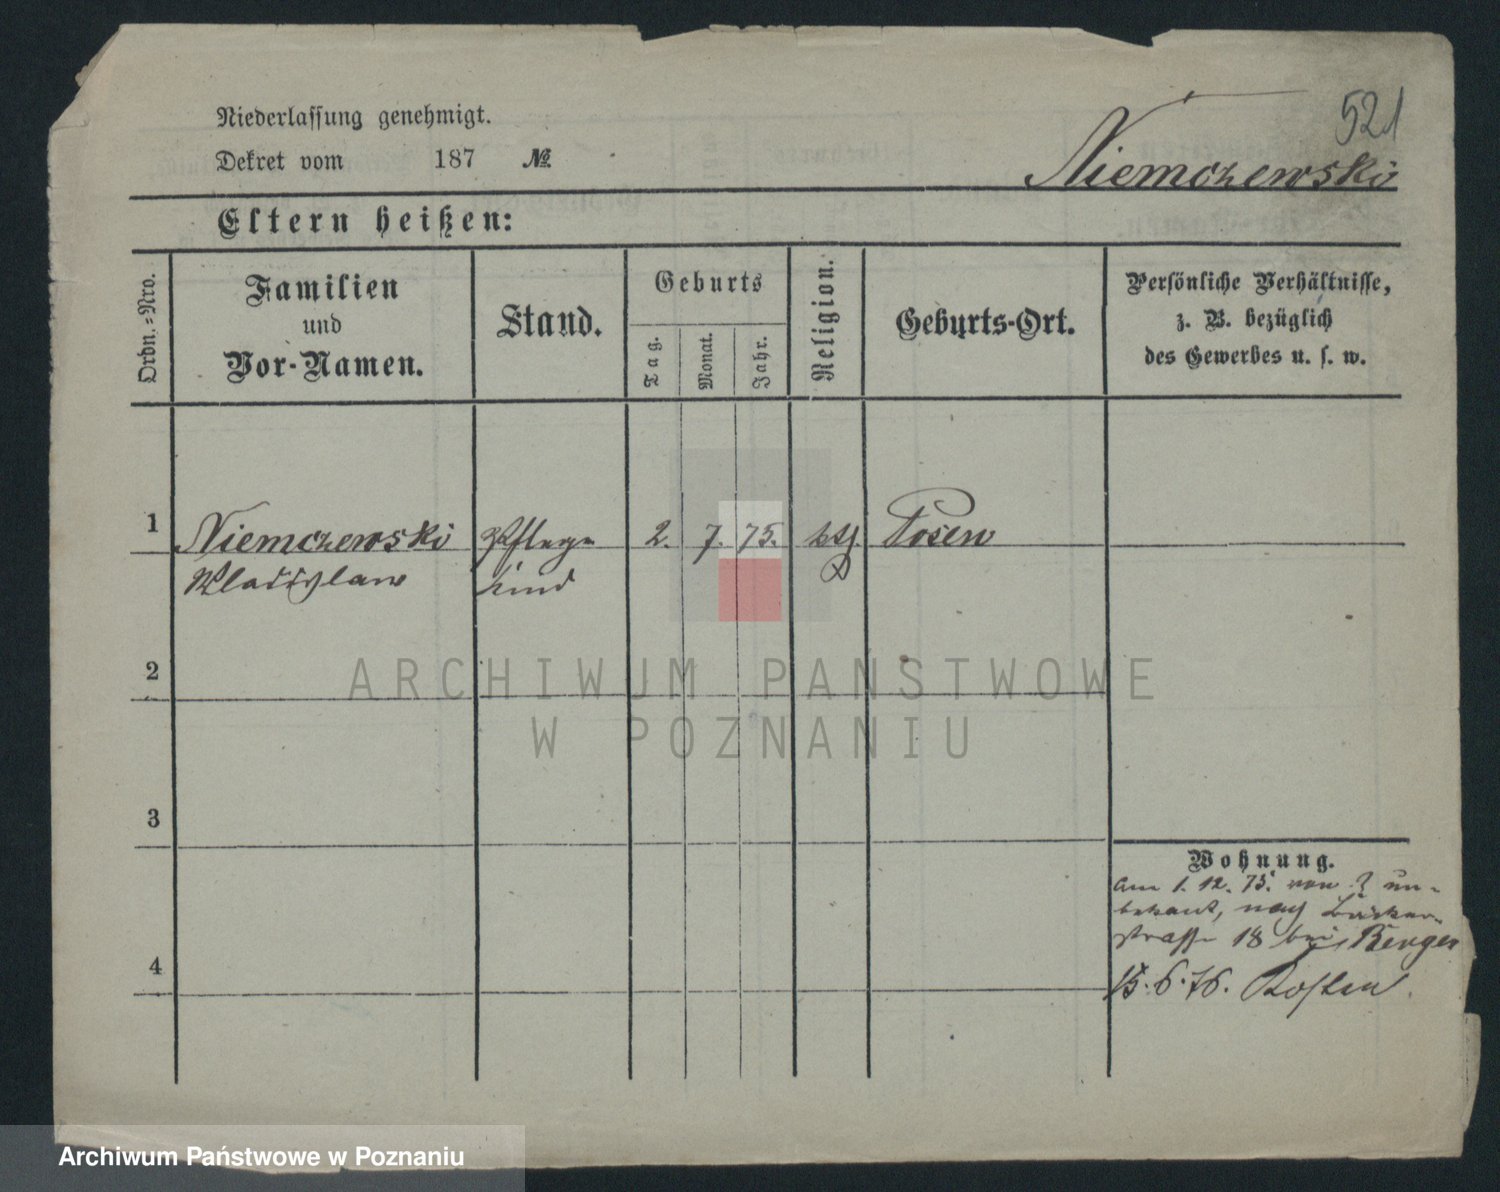 521
Niederlassung genehmigt.
Dekret vom 187 №
Niemczewski
Eltern heißen:
Ordn.-Nro.
Familien
und
Vor-Namen.
Stand.
Geburts
Tag.
Monat.
Jahr.
Religion.
Geburts-Ort.
Persönliche Verhältnisse,
z. B. bezüglich
des Gewerbes u. s. w.
1 Niemczewski Pflege 2. 7. 75. kth. Posen
Wladislaw kind
2
3
4
Wohnung.
am 1. 12. 75. von ? un-
bekannt, nach Bäcker-
straße 18 bei Berger
15. 6. 76. Kosten
ARCHIWUM PAŃSTWOWE
W POZNANIU
Archiwum Państwowe w Poznaniu